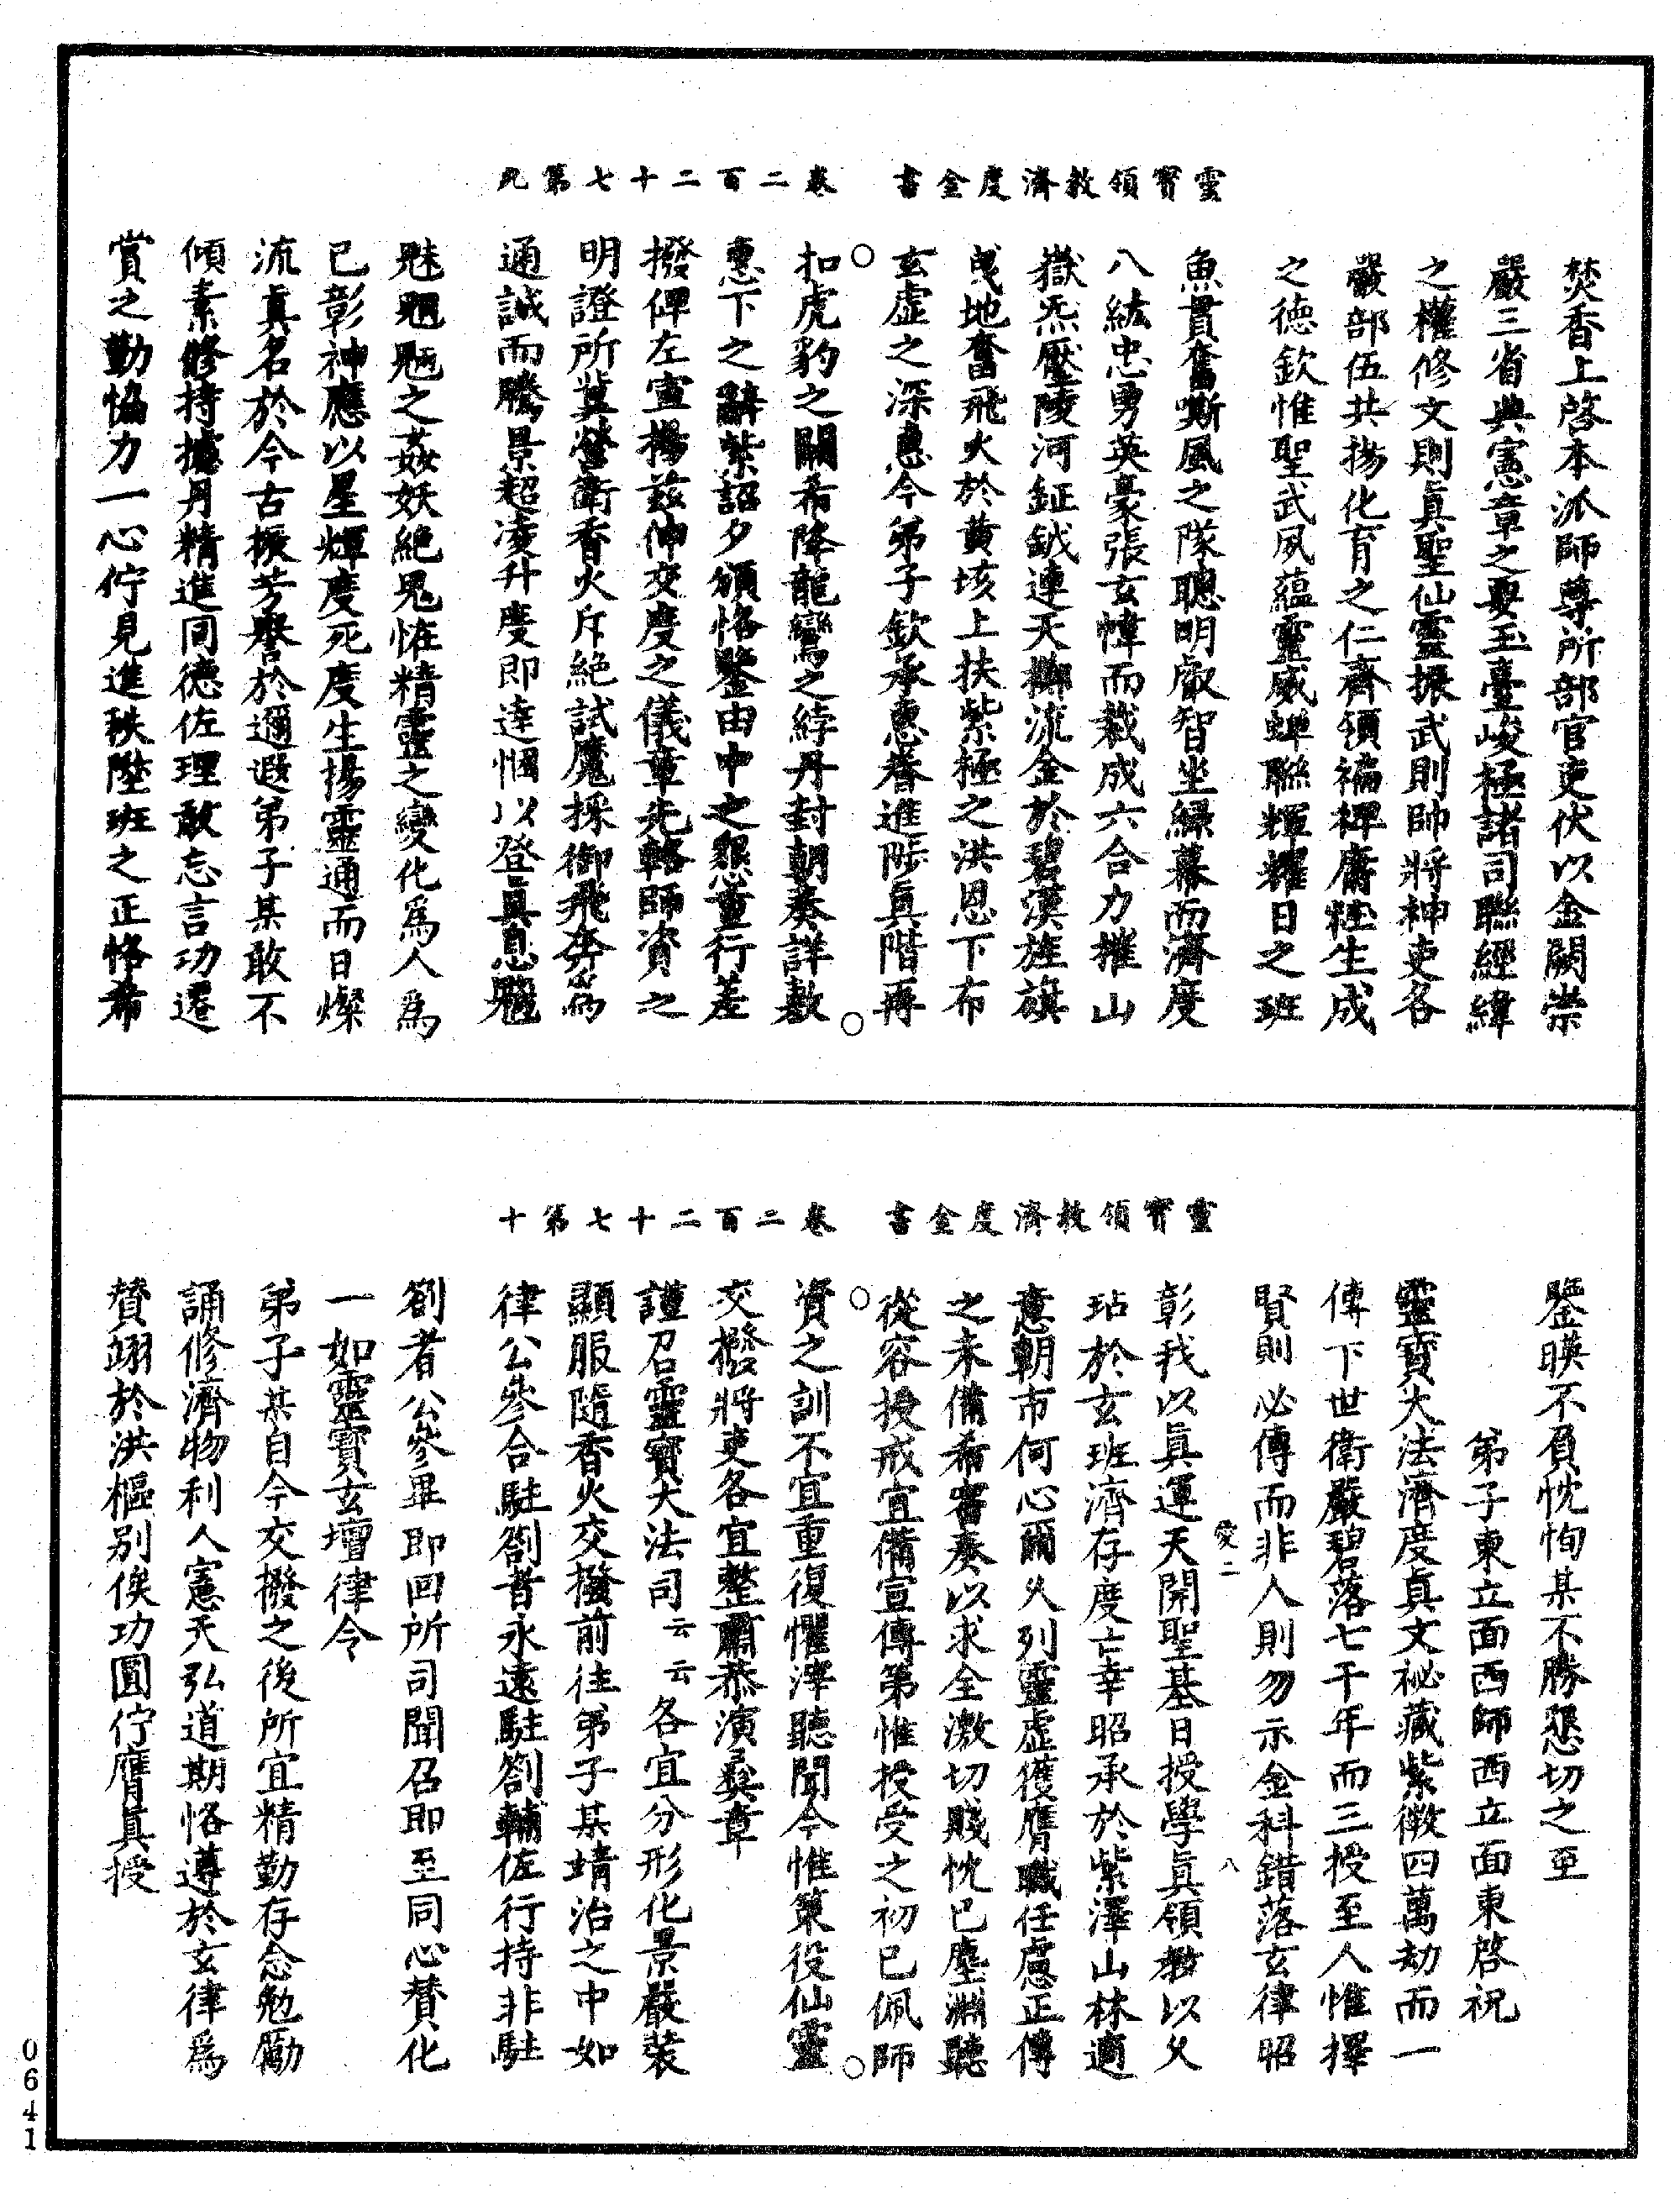 靈寶領教濟度金書　卷二百二十七第九
焚香上啓本派師尊所部官吏伏以金闕崇
嚴三省典憲章之要玉臺峻極諸司聯經緯
之權修文則眞聖仙靈振武則帥將神吏各
嚴部伍共揚化育之仁齊領褊裨庸輊生成
之德欽惟聖武夙蘊靈威蟬聯輝耀日之班
魚貫奮嘶風之隊聰明叡智坐綠幕而濟度
八紘忠勇英豪張玄幃而裁成六合力摧山
嶽炁壓陵河鉦鉞連天擲流金於碧漢旌旗
曵地奮飛火於黄垓上扶紫極之洪恩下布
玄虛之深惠今弟子欽承惠眷進陟眞階再
扣虎豹之關希降龍鸞之綍丹封朝奏詳敷
悳下之辭紫詔夕頒恪鑒由中之懇董行差
撥俾左宣揚茲伸交度之儀章先輅師資之
明證所冀營衛香火斥絶試魔採御飛奔爲
通誠而騰景超凌升度即達悃以登眞息魑
魅魍魎之姦妖絶鬼恠精靈之變化爲人爲
已彰神應以星輝度死度生揚靈通而日燦
流眞名於今古振芳譽於邇遐弟子某敢不
傾素修持攄丹精進同德佐理敢忘言功遷
賞之勤恊力一心佇見進秩陞班之正恪希
靈寶領教濟度金書　卷二百二十七第十
鑒暎不負忱恂某不勝懇切之至
弟子東立面西師西立面東啓祝
靈寶大法濟度眞文祕藏紫微四萬劫而一
傳下世衛嚴碧落七千年而三授至人惟擇
賢則必傳而非人則勿示金科錯落玄律昭
愛二　八
彰我以眞運天開聖基日授學眞領教以久
玷於玄班濟存度亡幸昭承於紫澤山林適
意朝市何心爾火列靈虛獲膺職任慮正傳
之未備希審奏以求全激切賤忱已塵淵聽
從容授戒宜備宣傳第惟授受之初已佩師
資之訓不宜重復懼滓聽聞今惟策役仙靈
交撥將吏各宜整肅恭演奚章
謹召靈寶大法司云云各宜分形化景嚴裝
顯服隨香火交撥前往弟子某靖治之中如
律公參合駐劄者永遠駐劄輔佐行持非駐
劄者公參畢即回所司聞召即至同心賛化
一如靈寶玄壇律令
弟子某自今交撥之後所宜精勤存念勉勵
誦修濟物利人憲天弘道期恪遵於玄律爲
賛翊於洪樞别俟功圓佇膺眞授
0641